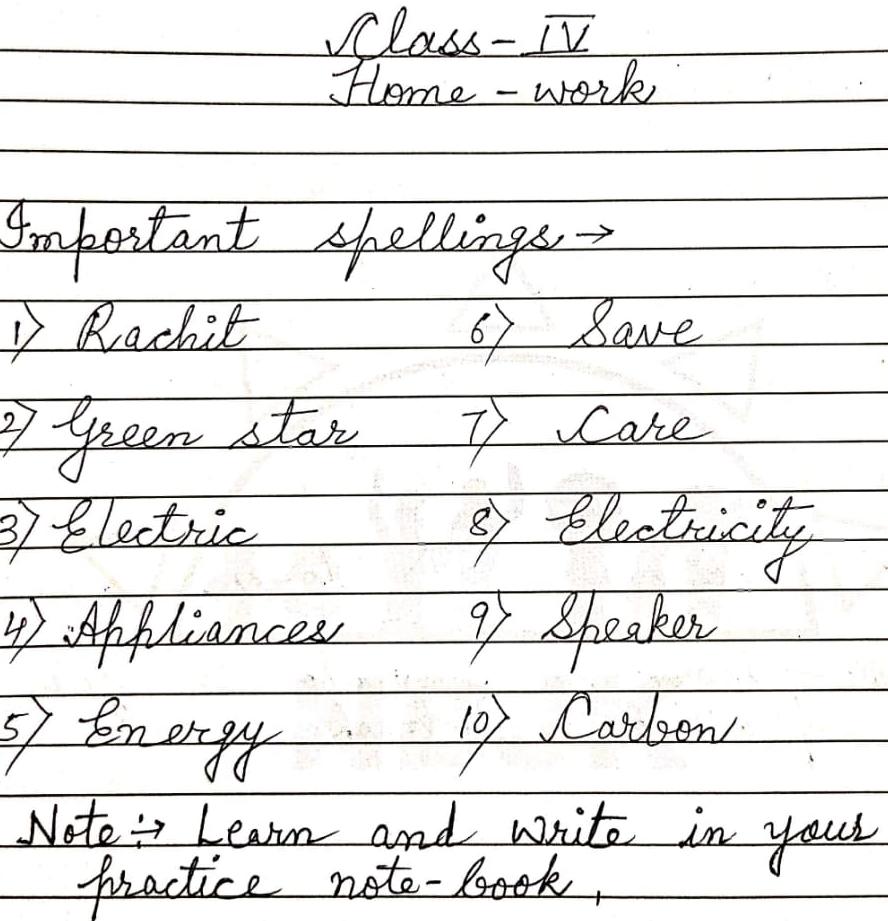 Class - IV
Home - work
Important spellings →
1) Rachit 6) Save
2) Green star 7) Care
3) Electric 8) Electricity
4) Appliances 9) Speaker
5) Energy 10) Carbon.
Note :→ Learn and write in your
practice note-book,